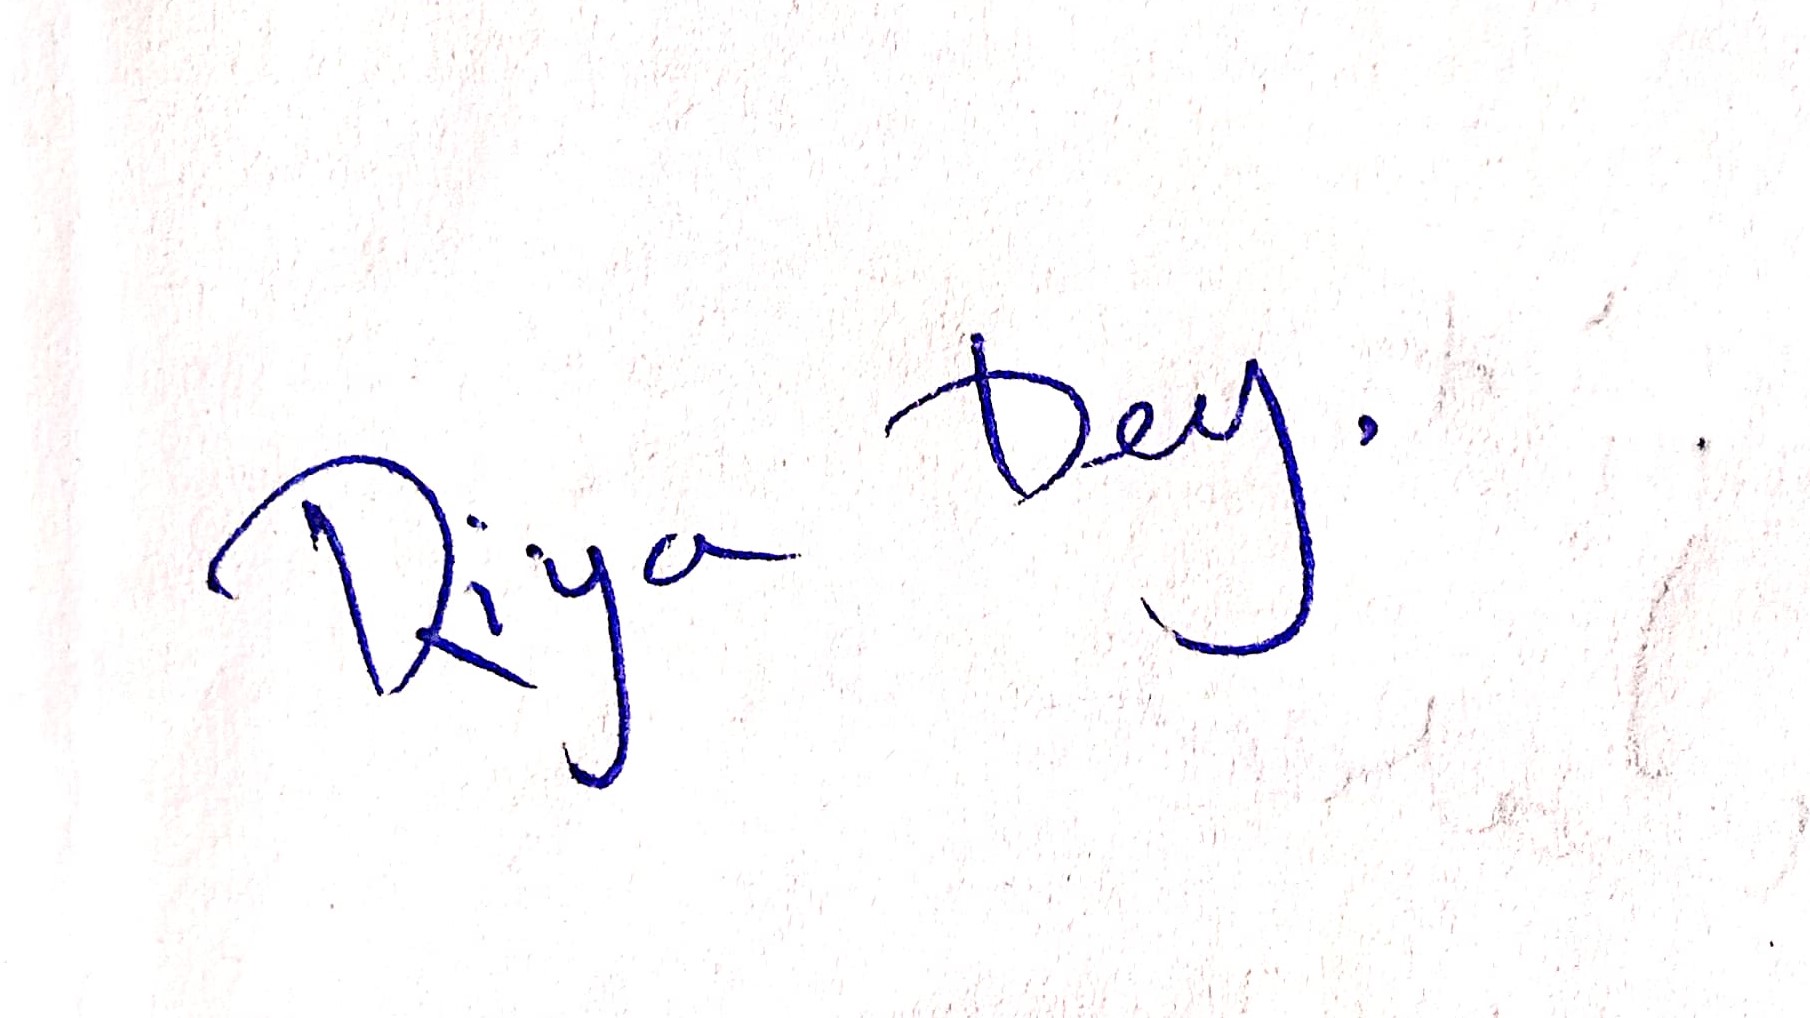 Riya Dey.